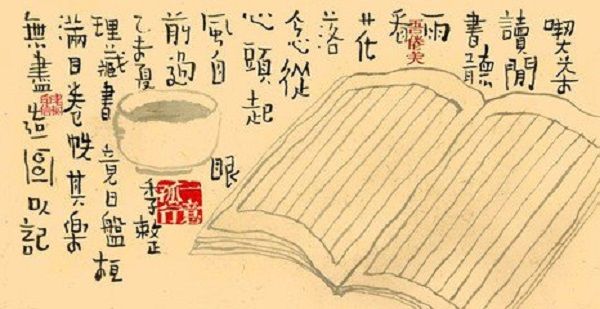 喫茶
讀閒
書聽
雨
看
花
落
念從
心頭起
風自眼
前過
乙未夏季整
理藏書竟日盤桓
滿目卷帙其樂
無盡以記
一意孤行